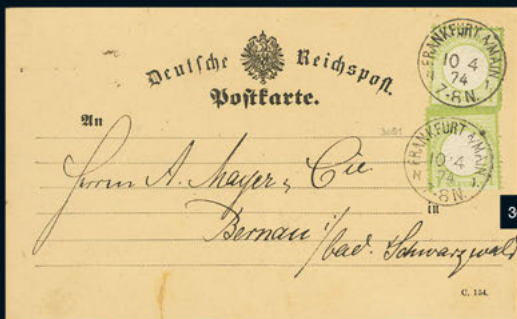 Deutsche Reichspost.
Postkarte.
FRANKFURT A/MAIN
10 4
74
7-8 N.
1.
An
3081
FRANKFURT A/MAIN
10 4
74
7-8 N.
1.
Herrn A. Mayer & Cie.
in
Bernau i/
bad. Schwarzwald
C. 154.